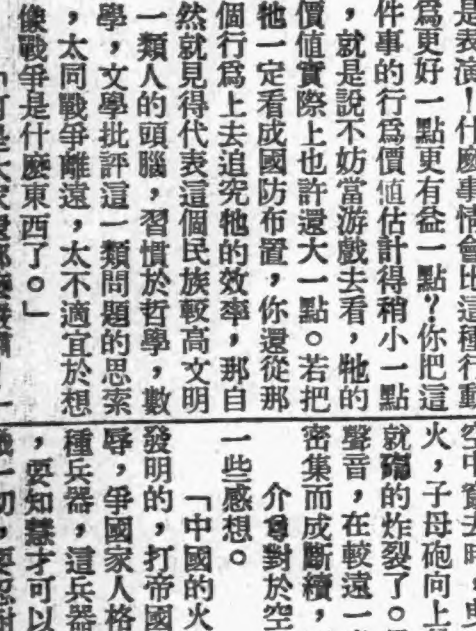 是表演！什麽事情會比這種行動
爲更好一點更有益一點？你把這
件事的行爲價値估計得稍小一點
，就是說不妨當游戲去看，牠的
價値實際上也許還大一點。若把
牠一定看成國防布置，你還從那
個行爲上去追究牠的效率，那自
然就見得代表這個民族較高文明
一類人的頭腦，習慣於哲學，數
學，文學批評這一類問題的思索
，太同戰爭離遠，太不適宜於想
像戰爭是什麽東西了。」
火，子母砲向上
就𥗴的炸裂了。
聲音，在較遠一
密集而成斷續，
介尊對於空
一些感想。
「中國的火
發明的，打帝國
辱，爭國家人格
種兵器，這兵器
，要知慧才可以